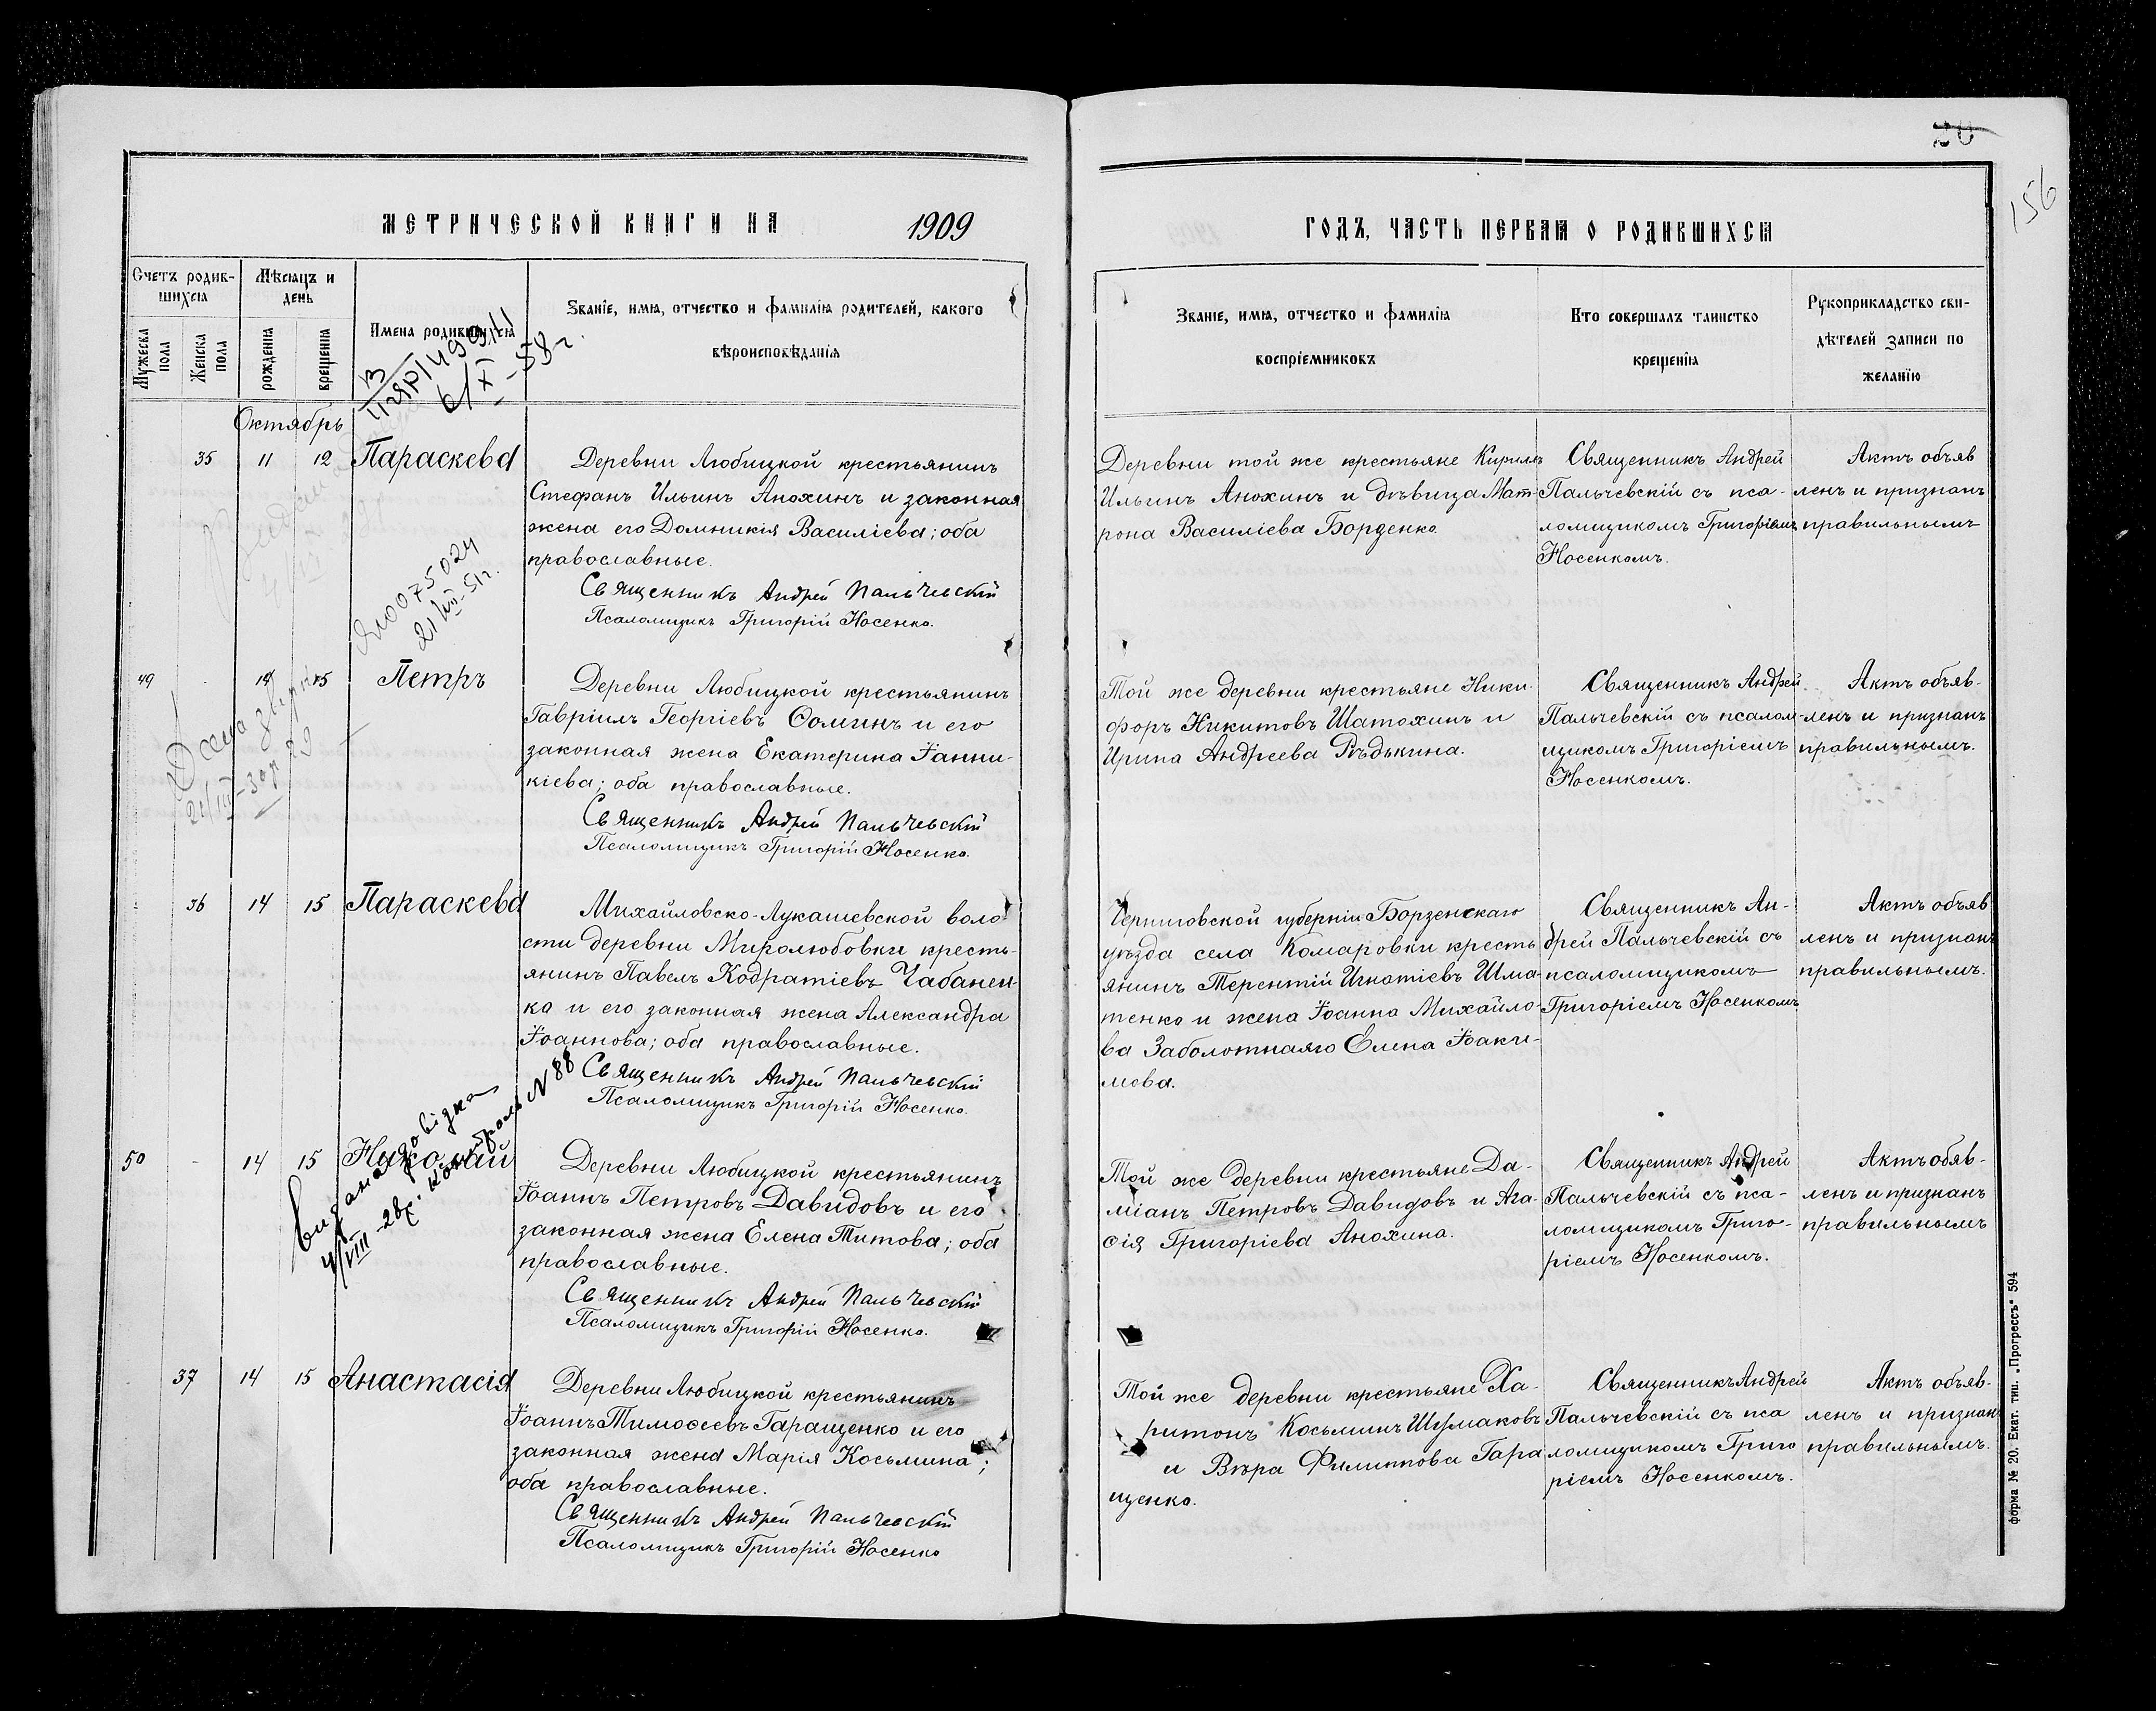 МЕТРИЧЕСКОЙ КНИГИ НА 1909
Счетъ родив-
шихся
Мѣсяцъ и
день
Мужеска
пола
Женска
пола
рожденія
крещенія
Имена родившихся
Званіе, имя, отчество и фамилія родителей, какого
вѣроисповѣданія
6/X-58г.
Октябрь
35 11 12 Параскева
Деревни Любицкой крестьянинъ
Стефанъ Ильинъ Анохинъ и законная
жена его Домникія Василіева; оба
православные.
Священникъ Андрей Пальчевскій
Псаломщикъ Григорій Носенко.
0075024
21/VII-51г.
49 14 15 Петръ
Деревни Любицкой крестьянинъ
Гавріилъ Георгіевъ Ѳоминъ и его
законная жена Екатерина Іанни-
кіева; оба православные.
Священникъ Андрей Пальчевскій
Псаломщикъ Григорій Носенко.
36 14 15 Параскева
Михайловско-Лукашевской воло-
сти деревни Миролюбовки кресть-
янинъ Павелъ Кодратіевъ Чабанен-
ко и его законная жена Александра
Іоаннова; оба православные.
Священникъ Андрей Пальчевскій
Псаломщикъ Григорій Носенко.
Видана довідка
4/VIII-28р. контроль N 88
50 - 14 15 Николай
Деревни Любицкой крестьянинъ
Іоаннъ Петровъ Давидовъ и его
законная жена Елена Титова; оба
православные.
Священникъ Андрей Пальчевскій
Псаломщикъ Григорій Носенко.
37 14 15 Анастасія
Деревни Любицкой крестьянинъ
Іоаннъ Тимоѳеевъ Гаращенко и его
законная жена Марія Косьмина;
оба православные.
Священникъ Андрей Пальчевскій
Псаломщикъ Григорій Носенко
156
ГОДЪ, ЧАСТЬ ПЕРВАЯ О РОДИВШИХСЯ
Званіе, имя, отчество и фамилія
воспріемниковъ
Кто совершалъ таинство
крещенія
Рукоприкладство сви-
дѣтелей записи по
желанію
Деревни той же крестьяне Кириллъ
Ильинъ Анохинъ и дѣвица Мат-
рона Василіева Борденко.
Священникъ Андрей
Пальчевскій съ пса-
ломщикомъ Григоріемъ
Носенкомъ.
Актъ объяв
ленъ и признанъ
правильнымъ
Той же деревни крестьяне Ники-
форъ Никитовъ Шатохинъ и
Ирина Андреева Рѣдькина.
Священникъ Андрей
Пальчевскій съ псалом-
щикомъ Григоріемъ
Носенкомъ.
Актъ объяв-
ленъ и признанъ
правильнымъ.
Черниговской губерніи Борзенскаго
уѣзда села Комаровки кресть
янинъ Терентій Игнатіевъ Шма-
тенко и жена Іоанна Михайло-
ва Заболотнаго Елена Іоаки-
мова.
Священникъ Ан-
дрей Пальчевскій съ
псаломщикомъ
Григоріемъ Носенкомъ
Актъ объяв-
ленъ и признанъ
правильнымъ.
Той же деревни крестьяне Да-
міанъ Петровъ Давидовъ и Ага-
ѳія Григоріева Анохина.
Священникъ Андрей
Пальчевскій съ пса-
ломщикомъ Григо-
ріемъ Носенкомъ.
Актъ обяв-
ленъ и признанъ
правильнымъ
Той же деревни крестьяне Ха-
ритонъ Косьминъ Шумаковъ
и Вѣра Филиппова Гара
щенко.
Священникъ Андрей
Пальчевскій съ пса
ломщикомъ Григо
ріемъ Носенкомъ.
Актъ объяв-
ленъ и признанъ
правильнымъ.
форма № 20. Екат. тип. „Прогрессъ“ 594